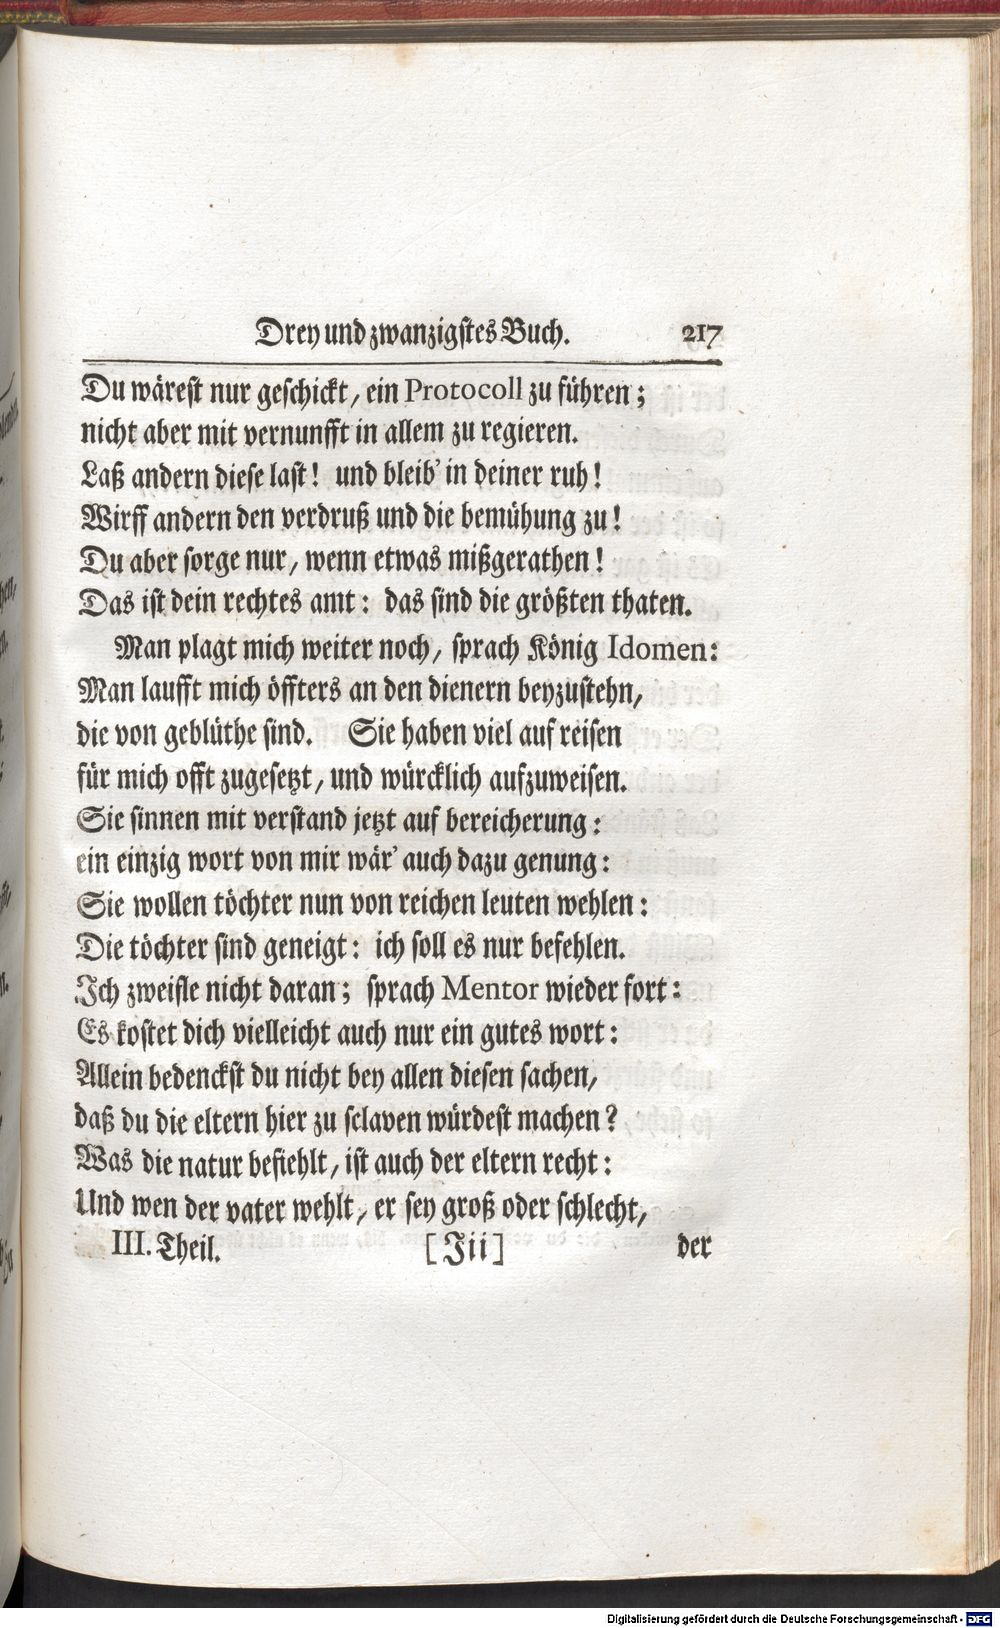 Drey und zwanzigstes Buch. 217
Du wärest nur geschickt, ein Protocoll zu führen;
nicht aber mit vernunfft in allem zu regieren.
Laß andern diese last! und bleib' in deiner ruh!
Wirff andern den verdruß und die bemühung zu!
Du aber sorge nur, wenn etwas mißgerathen!
Das ist dein rechtes amt: das sind die größten thaten.
Man plagt mich weiter noch, sprach König Idomen:
Man laufft mich öffters an den dienern beyzustehn,
die von geblüthe sind. Sie haben viel auf reisen
für mich offt zugesetzt, und würcklich aufzuweisen.
Sie sinnen mit verstand jetzt auf bereicherung:
ein einzig wort von mir wär' auch dazu genung:
Sie wollen töchter nun von reichen leuten wehlen:
Die töchter sind geneigt: ich soll es nur befehlen.
Ich zweifle nicht daran; sprach Mentor wieder fort:
Es kostet dich vielleicht auch nur ein gutes wort:
Allein bedenckst du nicht bey allen diesen sachen,
daß du die eltern hier zu sclaven würdest machen?
Was die natur befiehlt, ist auch der eltern recht:
Und wen der vater wehlt, er sey groß oder schlecht,
III. Theil. [Iii] der
Digitalisierung gefördert durch die Deutsche Forschungsgemeinschaft - DFG